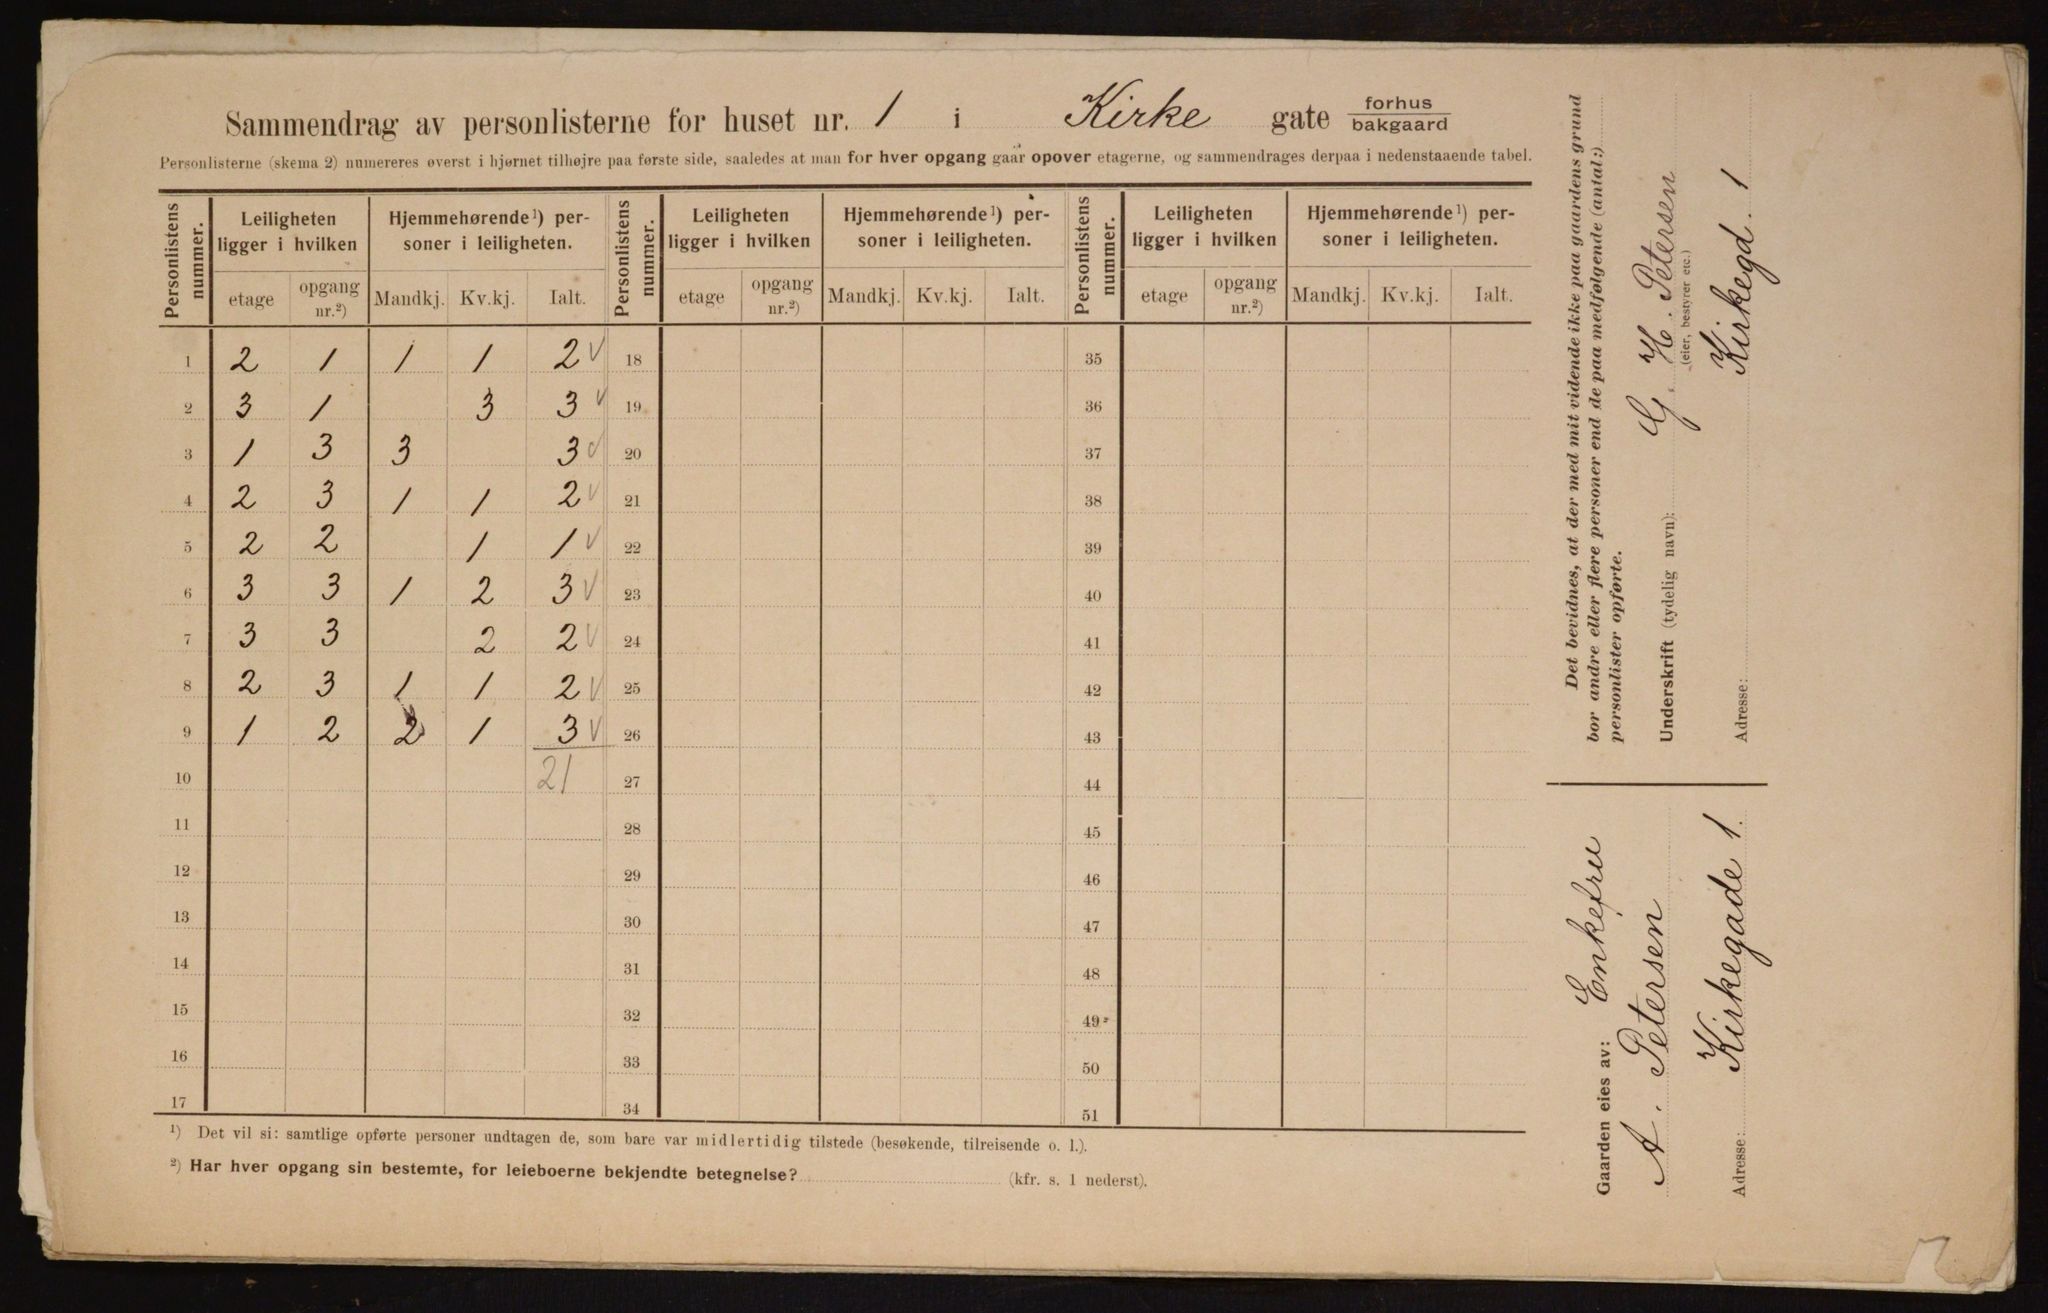 Sammendrag av personlisterne for huset nr. 1 i Kirke gate forhus
bakgaard
Personlisterne (skema 2) numereres øverst i hjørnet tilhøjre paa første side, saaledes at man for hver opgang gaar opover etagerne, og sammendrages derpaa i nedenstaaende tabel.
Personlistens nummer. Leiligheten ligger i hvilken Hjemmehørende¹) personer i leiligheten. Personlistens nummer. Leiligheten ligger i hvilken Hjemmehørende¹) personer i leiligheten. Personlistens nummer. Leiligheten ligger i hvilken Hjemmehørende¹) personer i leiligheten.
etage opgang nr.²) Mandkj. Kv.kj. Ialt. etage opgang nr.²) Mandkj. Kv.kj. Ialt. etage opgang nr.²) Mandkj. Kv.kj. Ialt.
1 2 1 1 1 2 √ 18 35
2 3 1 3 3 √ 19 36
3 1 3 3 3 √ 20 37
4 2 3 1 1 2 √ 21 38
5 2 2 1 1 √ 22 39
6 3 3 1 2 3 √ 23 40
7 3 3 2 2 √ 24 41
8 2 3 1 1 2 √ 25 42
9 1 2 2 1 3 √ 26 43
10 21 27 44
11 28 45
12 29 46
13 30 47
14 31 48
15 32 49
16 33 50
17 34 51
¹) Det vil si: samtlige opførte personer undtagen de, som bare var midlertidig tilstede (besøkende, tilreisende o. l.).
²) Har hver opgang sin bestemte, for leieboerne bekjendte betegnelse? (kfr. s. 1 nederst).
Det bevidnes, at der med mit vidende ikke paa gaardens grund
bor andre eller flere personer end de paa medfølgende (antal:)
personlister opførte.
Underskrift (tydelig navn): G. H. Petersen
(eier, bestyrer etc.)
Adresse: Kirkegd. 1
Gaarden eies av: Enkefru
A. Petersen
Adresse: Kirkegade 1.